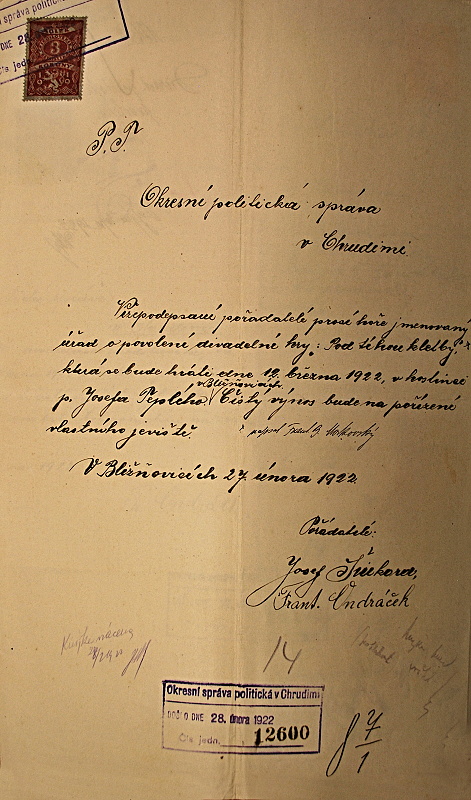 ní správa politick
DNE 28
Čís. jedn.
3
P. T.
Okresní politická správa
v Chrudimi.
Nížepodepsaní pořadatelé prosí hoře jmenovaný
úřad o povolení divadelní hry: "Pod tíhou kletby,"
která se bude hráti dne 12. března 1922, v hostinci
v Bližňovicích.
p. Josefa Teplého. Čistý výnos bude na pořízení
vlastního jeviště.
napsal
V Bližňovicích 27. února 1922.
Pořadatelé:
Josef
Frant. Ondráček
14
Okresní správa politická v Chrudimi
DOŠLO DNE 28. února 1922
Čís. jedn. 12600
7
1